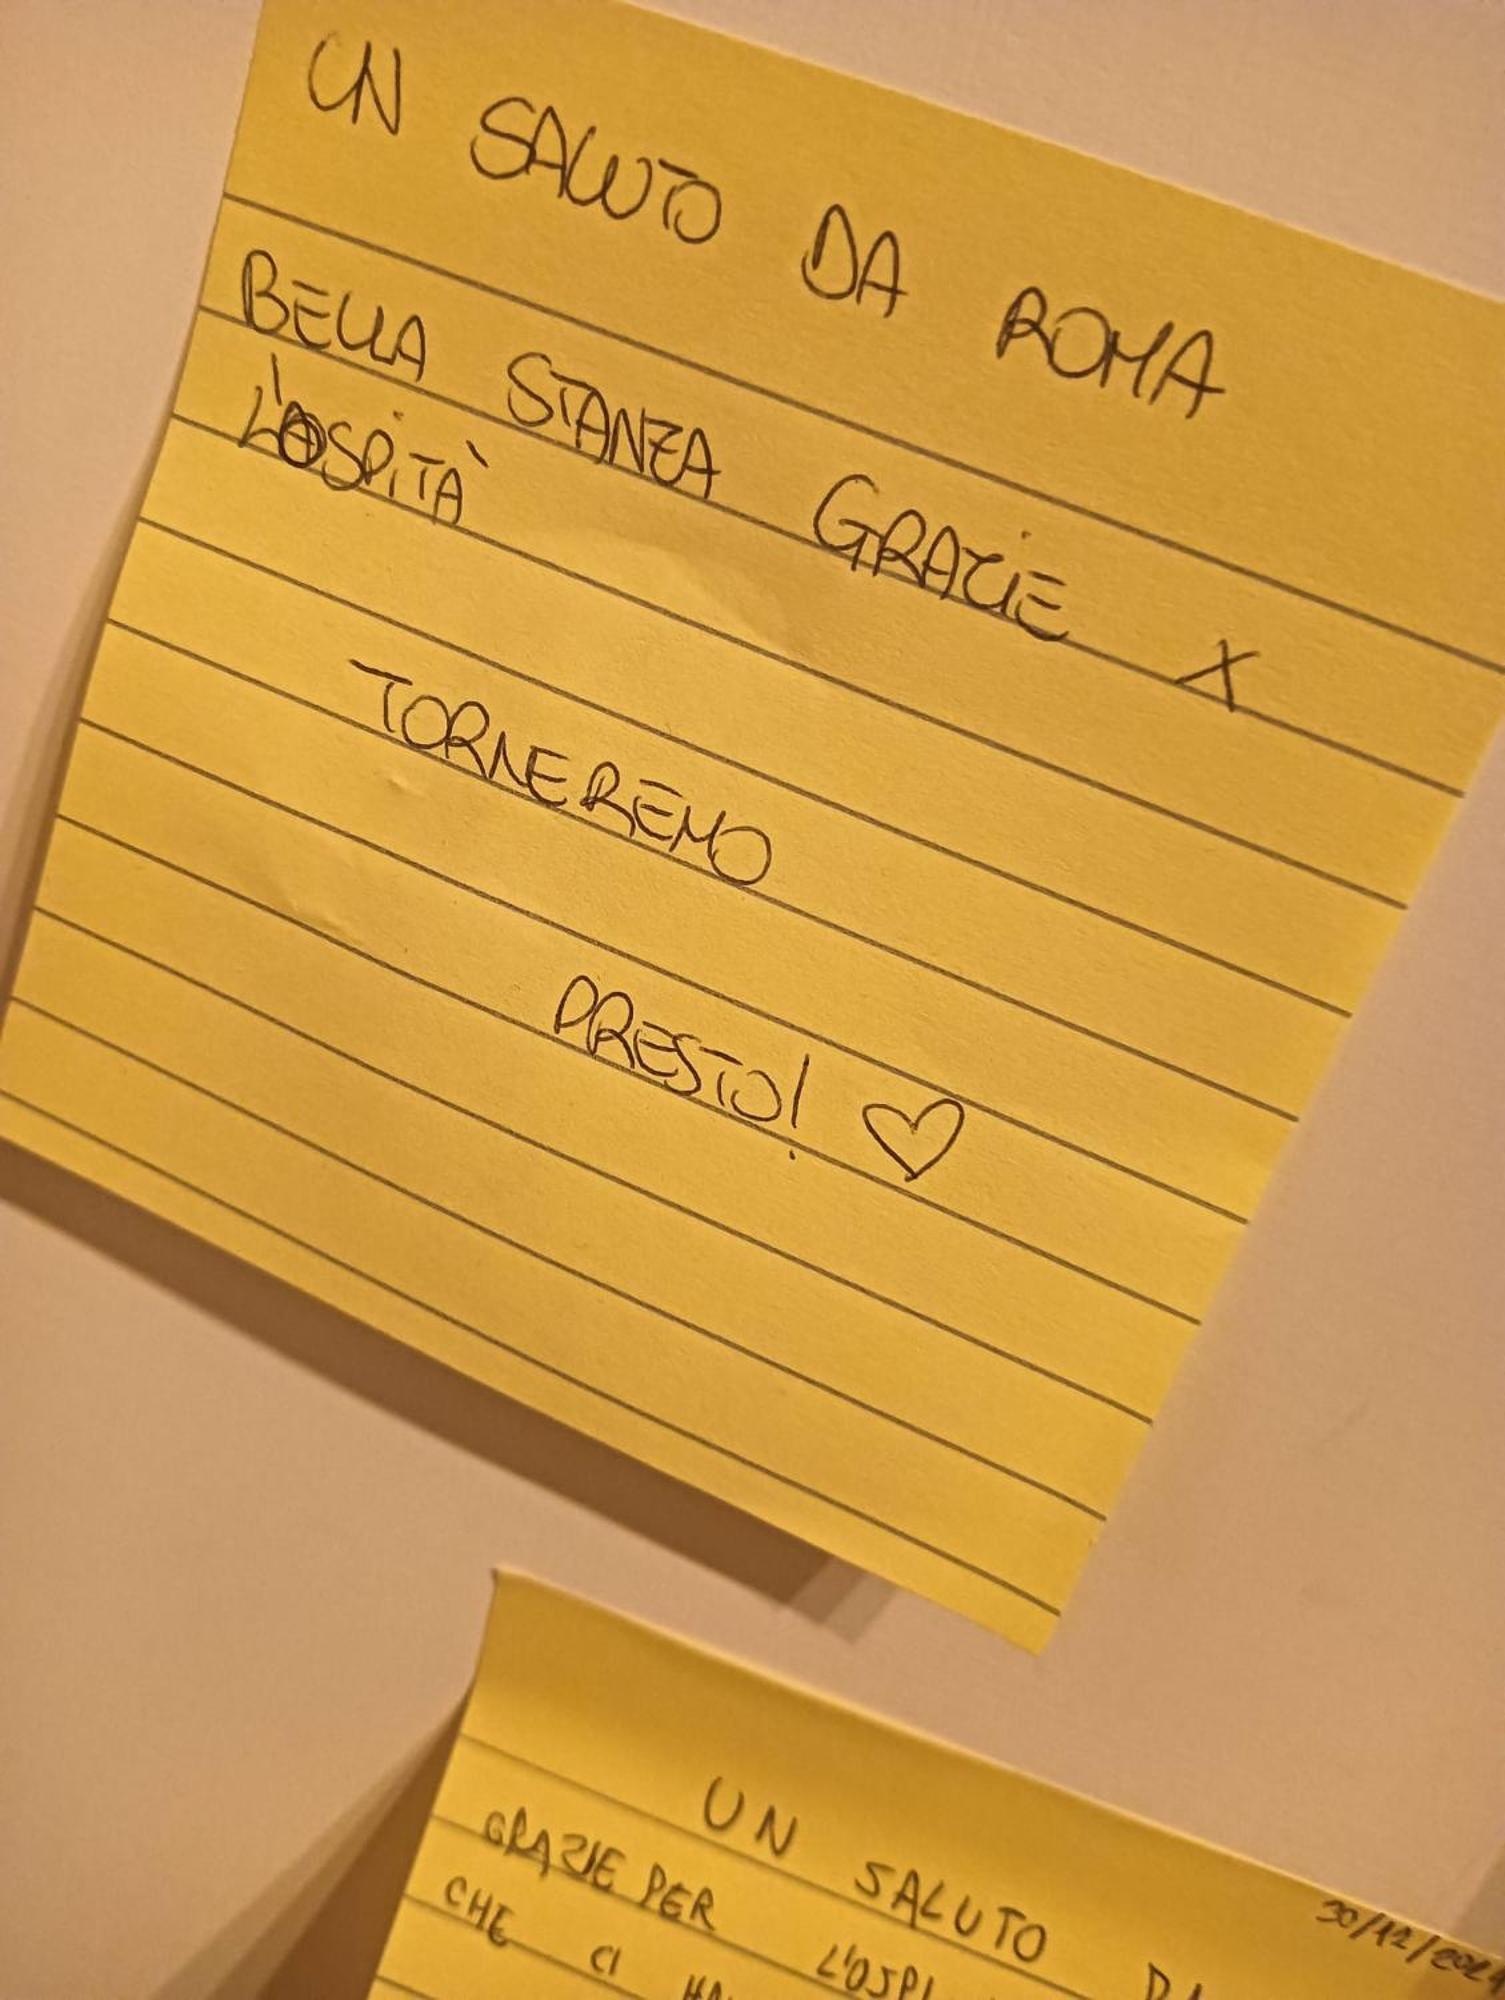 UN SALUTO DA ROMA
BELLA STANZA GRAZIE X
L'OSPITÀ
TORNEREMO
PRESTO! ♡
30/12/2024
UN SALUTO
GRAZIE PER L'OSPI
CHE CI HA